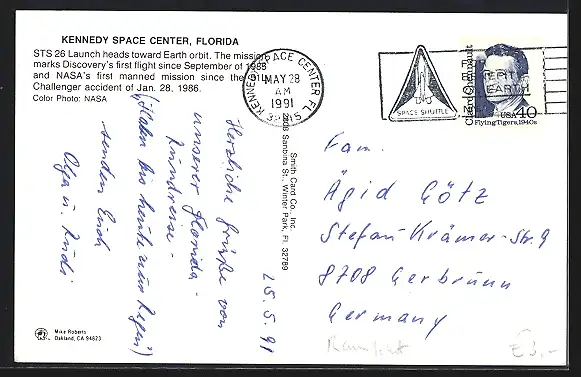 KENNEDY SPACE CENTER, FLORIDA
STS 26 Launch heads toward Earth orbit. The mission
marks Discovery's first flight since September of 1988
and NASA's first manned mission since the 51L
Challenger accident of Jan. 28, 1986.
Color Photo: NASA
KENNEDY SPACE CENTER FL
MAY 28
AM
1991
SPACE SHUTTLE
Claire Chennault
USA 40
Flying Tigers, 1940s
Herzliche Grüße von
unserer Florida-
Rundreise -
(Jeden bis heute nein Regen)
senden Euch
Olga u. Rudi
25.5.91
Smith Card Co., Inc.
Sanbina St., Winter Park, Fl. 32789
Fam.
Ägid Götz
Stefan-Krämer-Str. 9
8708 Gerbrunn
Germany
Mike Roberts
Oakland, CA 94623
Raumfahrt
€3,-